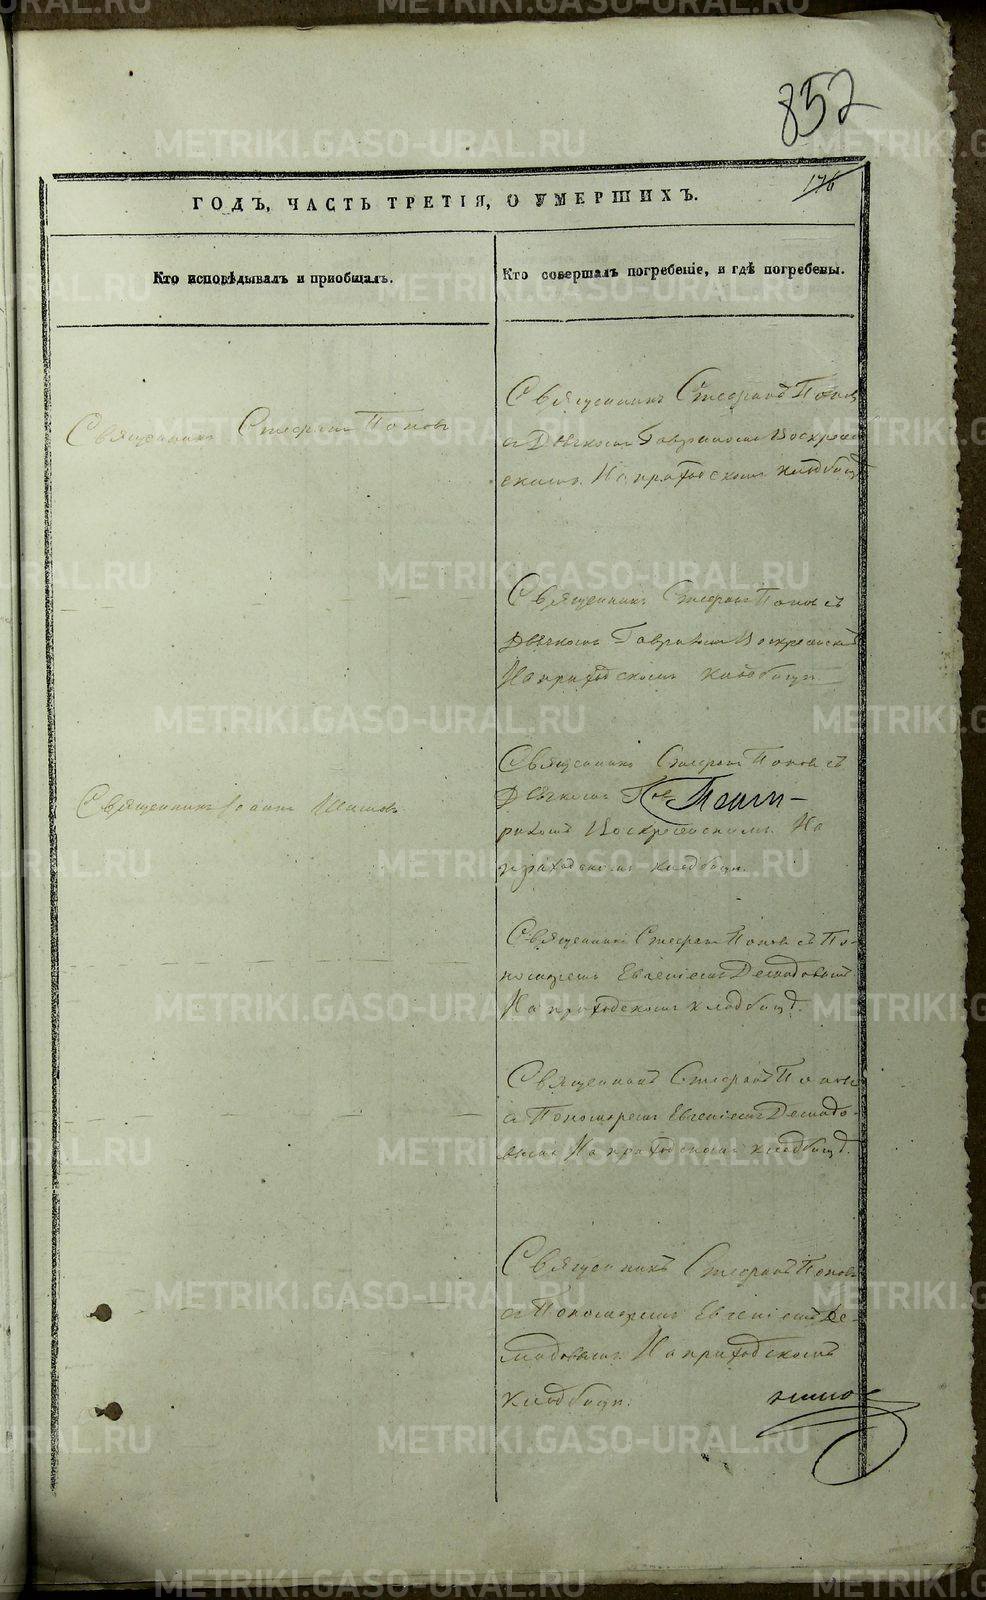 852
176
ГОДЪ, ЧАСТЬ ТРЕТІЯ, О УМЕРШИХЪ.
Кто исповѣдывалъ и пріобщалъ.
Кто совершалъ погребеніе, и гдѣ погребены.
Священникъ Стефанъ Поповъ
Священникъ Стефанъ Попов
с Дьячкомъ Гавриломъ Воскресен
скимъ. На приходскомъ кладбищѣ
Священникъ Стефанъ Попов съ
Дьячкомъ Гавриломъ Воскресенским
На приходскомъ кладбищѣ
Священникъ Іоаннъ Шишов
Священникъ Стефанъ Попов съ
Дьячкомъ
Воскресенскимъ. На
приходскомъ кладбищѣ.
Священникъ Стефанъ Попов съ По-
номаремъ Евгеніемъ Демидовымъ
На приходскомъ кладбищѣ.
Священникъ Стефанъ Попов
с Пономаремъ Евгеніемъ Демидо-
вымъ На приходскомъ кладбищѣ.
Священникъ Стефанъ Поповъ
с Пономаремъ Евгеніемъ Де-
мидовымъ. На приходскомъ
кладбищѣ.
METRIKI.GASO-URAL.RU